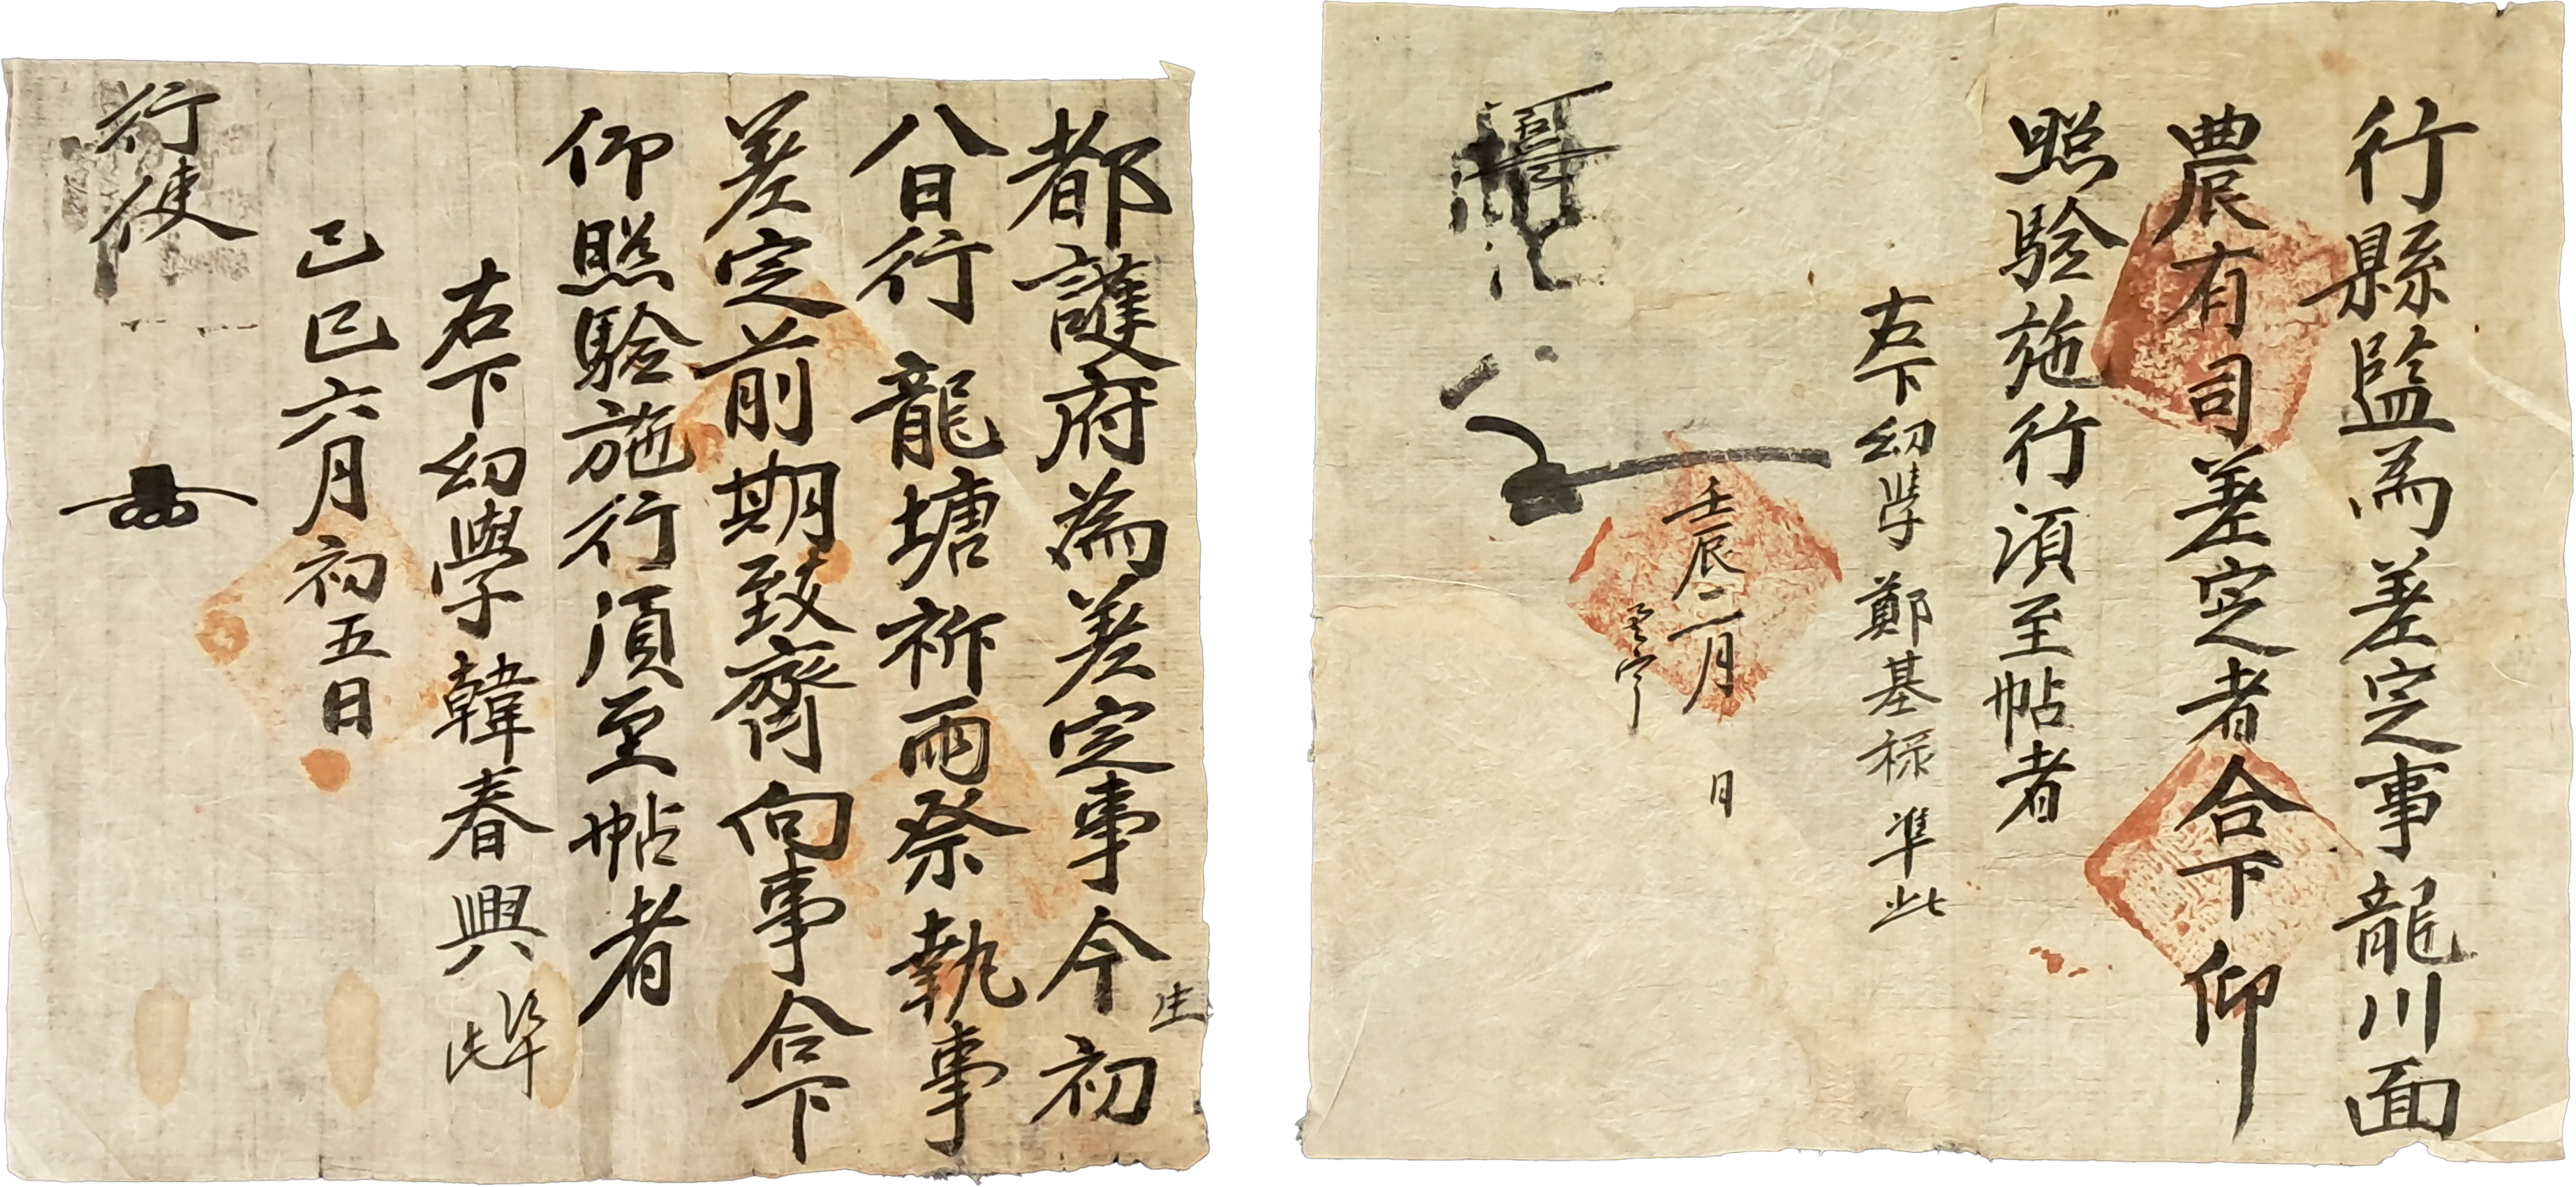 行縣監為差定事龍川面
農有司差定者合下仰
照驗施行須至帖者
右下幼學鄭基祿準此
壬辰二月 日
都護府為差定事今初
八日行龍塘祈雨祭執事
差定前期致齊向事合下
仰照驗施行須至帖者
右下幼學韓春興準此
己巳六月初五日
行使